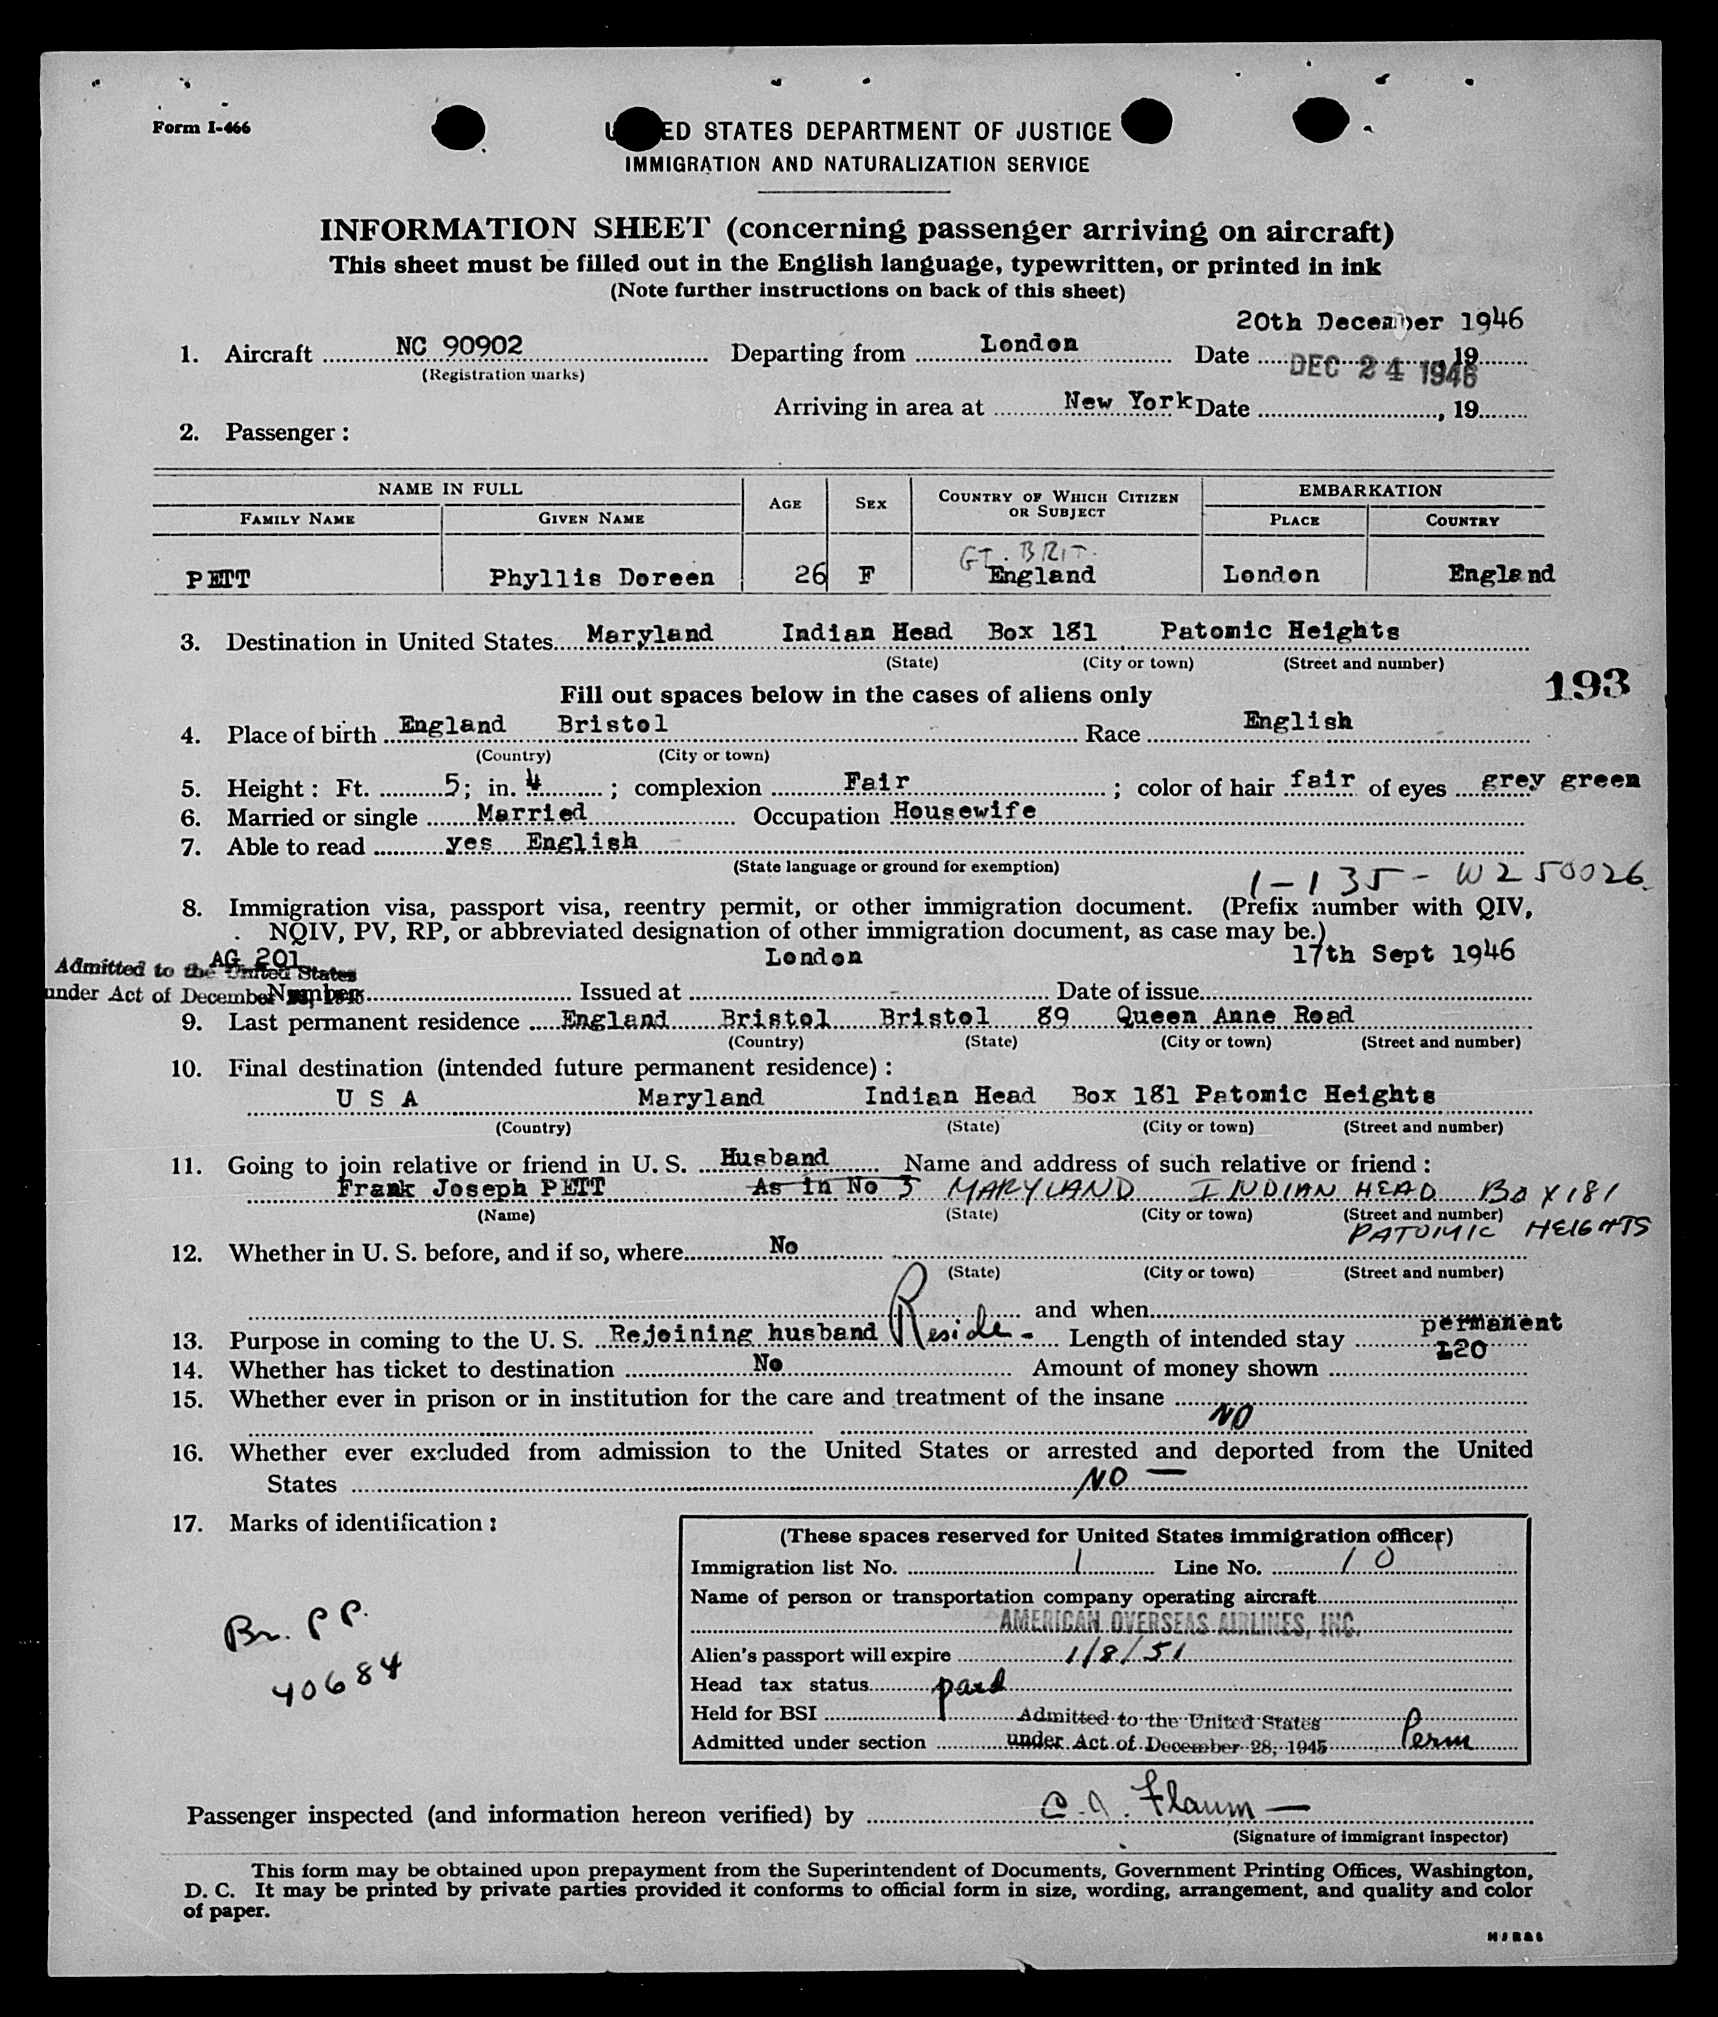 Form I-466
ED STATES DEPARTMENT OF JUSTICE
IMMIGRATION AND NATURALIZATION SERVICE
INFORMATION SHEET (concerning passenger arriving on aircraft)
This sheet must be filled out in the English language, typewritten, or printed in ink
(Note further instructions on back of this sheet)
20th December 1946
1. Aircraft NC 90902 Departing from London Date , 19
(Registration marks)
DEC 24 1946
Arriving in area at New York Date , 19
2. Passenger:
NAME IN FULL AGE SEX COUNTRY OF WHICH CITIZEN OR SUBJECT EMBARKATION
FAMILY NAME GIVEN NAME PLACE COUNTRY
GT. BRIT.
PETT Phyllis Doreen 26 F England London England
3. Destination in United States Maryland Indian Head Box 181 Patomic Heights
(State) (City or town) (Street and number)
193
Fill out spaces below in the cases of aliens only
4. Place of birth England Bristol Race English
(Country) (City or town)
5. Height: Ft. 5; in. 4; complexion Fair; color of hair fair of eyes grey green
6. Married or single Married Occupation Housewife
7. Able to read yes English
(State language or ground for exemption)
1-135-W250026
8. Immigration visa, passport visa, reentry permit, or other immigration document. (Prefix number with QIV,
NQIV, PV, RP, or abbreviated designation of other immigration document, as case may be.)
AG 201 London 17th Sept 1946
Admitted to the United States
under Act of December 28, 1945
Number Issued at Date of issue
9. Last permanent residence England Bristol Bristol 89 Queen Anne Road
(Country) (State) (City or town) (Street and number)
10. Final destination (intended future permanent residence):
U S A Maryland Indian Head Box 181 Patomic Heights
(Country) (State) (City or town) (Street and number)
11. Going to join relative or friend in U. S. Husband Name and address of such relative or friend:
Frank Joseph PETT As in No 3 MARYLAND INDIAN HEAD BOX 181
(Name) (State) (City or town) (Street and number)
PATOMIC HEIGHTS
12. Whether in U. S. before, and if so, where No
(State) (City or town) (Street and number)
and when
13. Purpose in coming to the U. S. Rejoining husband Reside - Length of intended stay permanent
14. Whether has ticket to destination No Amount of money shown £20
15. Whether ever in prison or in institution for the care and treatment of the insane
NO
16. Whether ever excluded from admission to the United States or arrested and deported from the United
States NO —
17. Marks of identification:
Br. P P.
40684
(These spaces reserved for United States immigration officer)
Immigration list No. 1 Line No. 10
Name of person or transportation company operating aircraft
AMERICAN OVERSEAS AIRLINES, INC.
Alien's passport will expire 1/8/51
Head tax status paid
Held for BSI Admitted to the United States
Admitted under section under Act of December 28, 1945 Perm
Passenger inspected (and information hereon verified) by C. J. Flaum —
(Signature of immigrant inspector)
This form may be obtained upon prepayment from the Superintendent of Documents, Government Printing Offices, Washington,
D. C. It may be printed by private parties provided it conforms to official form in size, wording, arrangement, and quality and color
of paper.